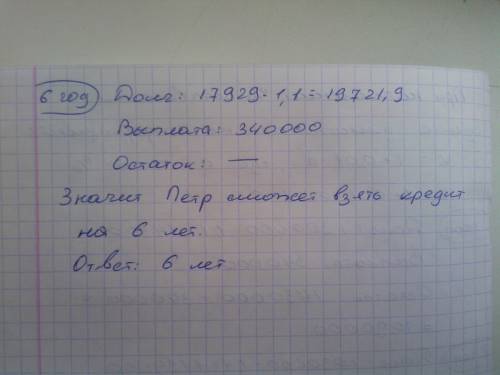 6 год Долг: 17929·1,1=19721,9
Выплата: 340000
Остаток: —
Значит Петр сможет взять кредит
на 6 лет.
Ответ: 6 лет